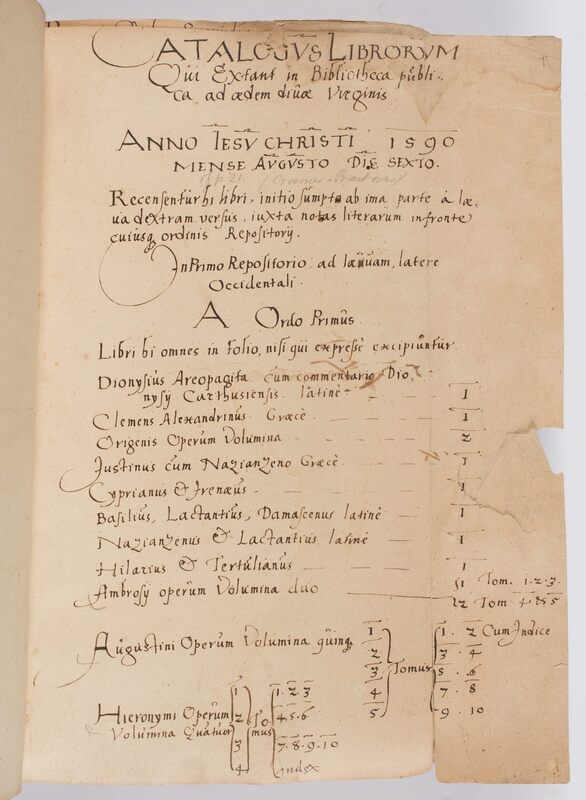 CATALOGVS LIBRORVM
Qui Extant in Bibliotheca publi-
ca, ad ædem diuæ Virginis.
ANNO IESV CHRISTI 1590
MENSE AVGVSTO DIE SEXTO.
Recensentur hi libri, initio sumpto ab ima parte à læ,
ua dextram versus, iuxta notas literarum in fronte
cuiusq; ordinis Repositorij.
In Primo Repositorio, ad læuam, latere
Occidentali.
A Ordo Primus.
Libri hi omnes in Folio, nisi qui expresse excipiuntur.
Dionysius Areopagita cum commentario Dio,
nysij Carthusiensis latinè 1
Clemens Alexandrinus Græcè 1
Origenis Operum Volumina 2
Justinus cum Nazianzeno Græcè 1
Cyprianus & Irenæus 1
Basilius, Lactantius, Damascenus latinè 1
Nazianzenus & Lactantius latinè 1
Hilarius & Tertulianus 1
Ambrosij operum Volumina duo 1 Tom. 1. 2. 3
2 Tom 4 & 5
Augustini Operum Volumina quinq; 1 1. 2 Cum Indice
2 3. 4
3 Tomus 5. 6
4 7. 8
5 9. 10
Hieronymi Operum 1 1. 2. 3
Volumina Quatuor 2 To, 4. 5. 6
3 mus 7. 8. 9. 10
4 Index